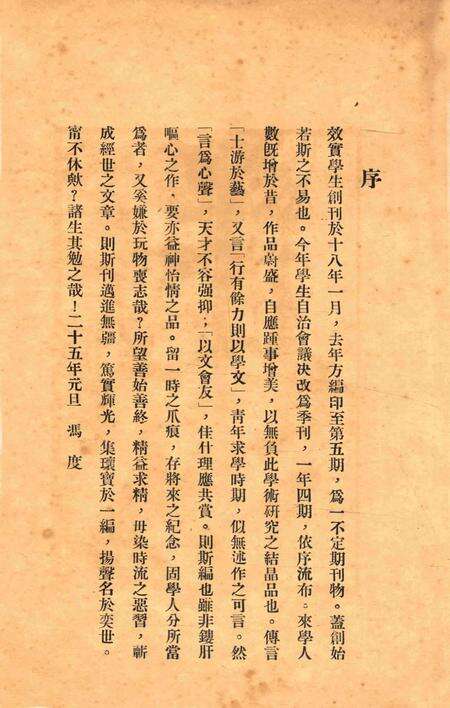 序
效實學生創刊於十八年一月，去年方編印至第五期，爲一不定期刊物。蓋創始
若斯之不易也。今年學生自治會議决改爲季刊，一年四期，依序流布。來學人
數旣增於昔，作品蔚盛，自應踵事增美，以無負此學術研究之結晶品也。傳言
「士游於藝」，又言「行有餘力則以學文」，靑年求學時期，似無述作之可言。然
「言爲心聲」，天才不容强抑；「以文會友」，佳什理應共賞。則斯編也雖非鏤肝
嘔心之作，要亦益神怡情之品。留一時之爪痕，存將來之紀念，固學人分所當
爲者，又奚嫌於玩物喪志哉？所望善始善終，精益求精，毋染時流之惡習，蘄
成經世之文章。則斯刊邁進無疆，篤實輝光，集瓌寶於一編，揚聲名於奕世。
甯不休歟？諸生其勉之哉！二十五年元旦　馮度